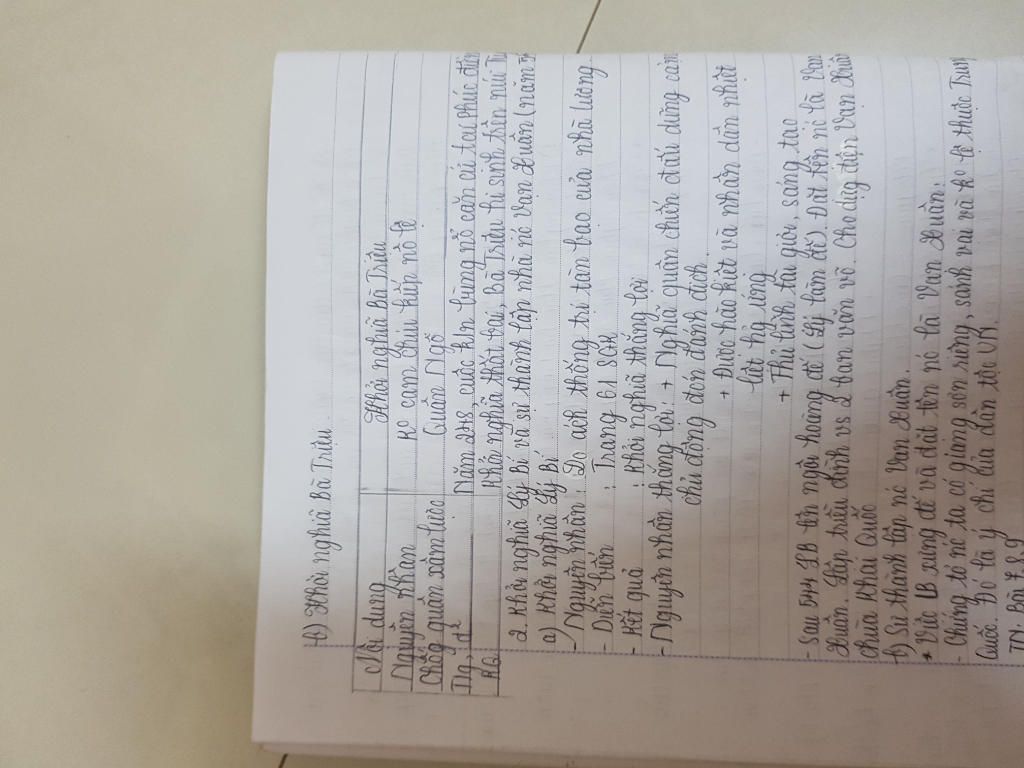 b) Khởi nghĩa Bà Triệu.
Nội dung Khởi nghĩa Bà Triệu
Nguyên nhân Ko cam chịu kiếp nô lệ
Chống quân xâm lược Quân Ngô
Năm 248, cuộc k/n bùng nổ căn cứ tại Phúc điền
KQ. Khởi nghĩa thất bại, Bà Triệu hi sinh trên núi
2 Khởi nghĩa Lý Bí và sự thành lập nhà nc Vạn Xuân (năm
a) Khởi nghĩa Lý Bí
- Nguyên nhân : Do ách thống trị tàn bạo của nhà Lương.
- Diễn biến : Trang 61 SGK
- Kết quả : Khởi nghĩa thắng lợi
- Nguyên nhân thắng lợi: + Nghĩa quân chiến đấu dũng cảm
chủ động đón đánh địch.
+ Được hào kiệt và nhân dân nhiệt
liệt hg ứng
+ Thủ lĩnh tài giỏi, sáng tạo
- Sau 544 LB lên ngôi hoàng đế (Lý Nam đế). Đặt tên nc là Vạn
Xuân. Lập triều đình vs 2 ban văn võ. Cho dựng điện Vạn Xuân
chùa Khai Quốc
b) Sự thành lập nc Vạn Xuân.
* Việc LB xưng đế và đặt tên nc là Vạn Xuân.
- Chứng tỏ nc ta có giang sơn riêng, sánh vai và ko lệ thuộc Trung
Quốc. Đó là ý chí của dân tộc VN.
TN. Bài 7, 8, 9